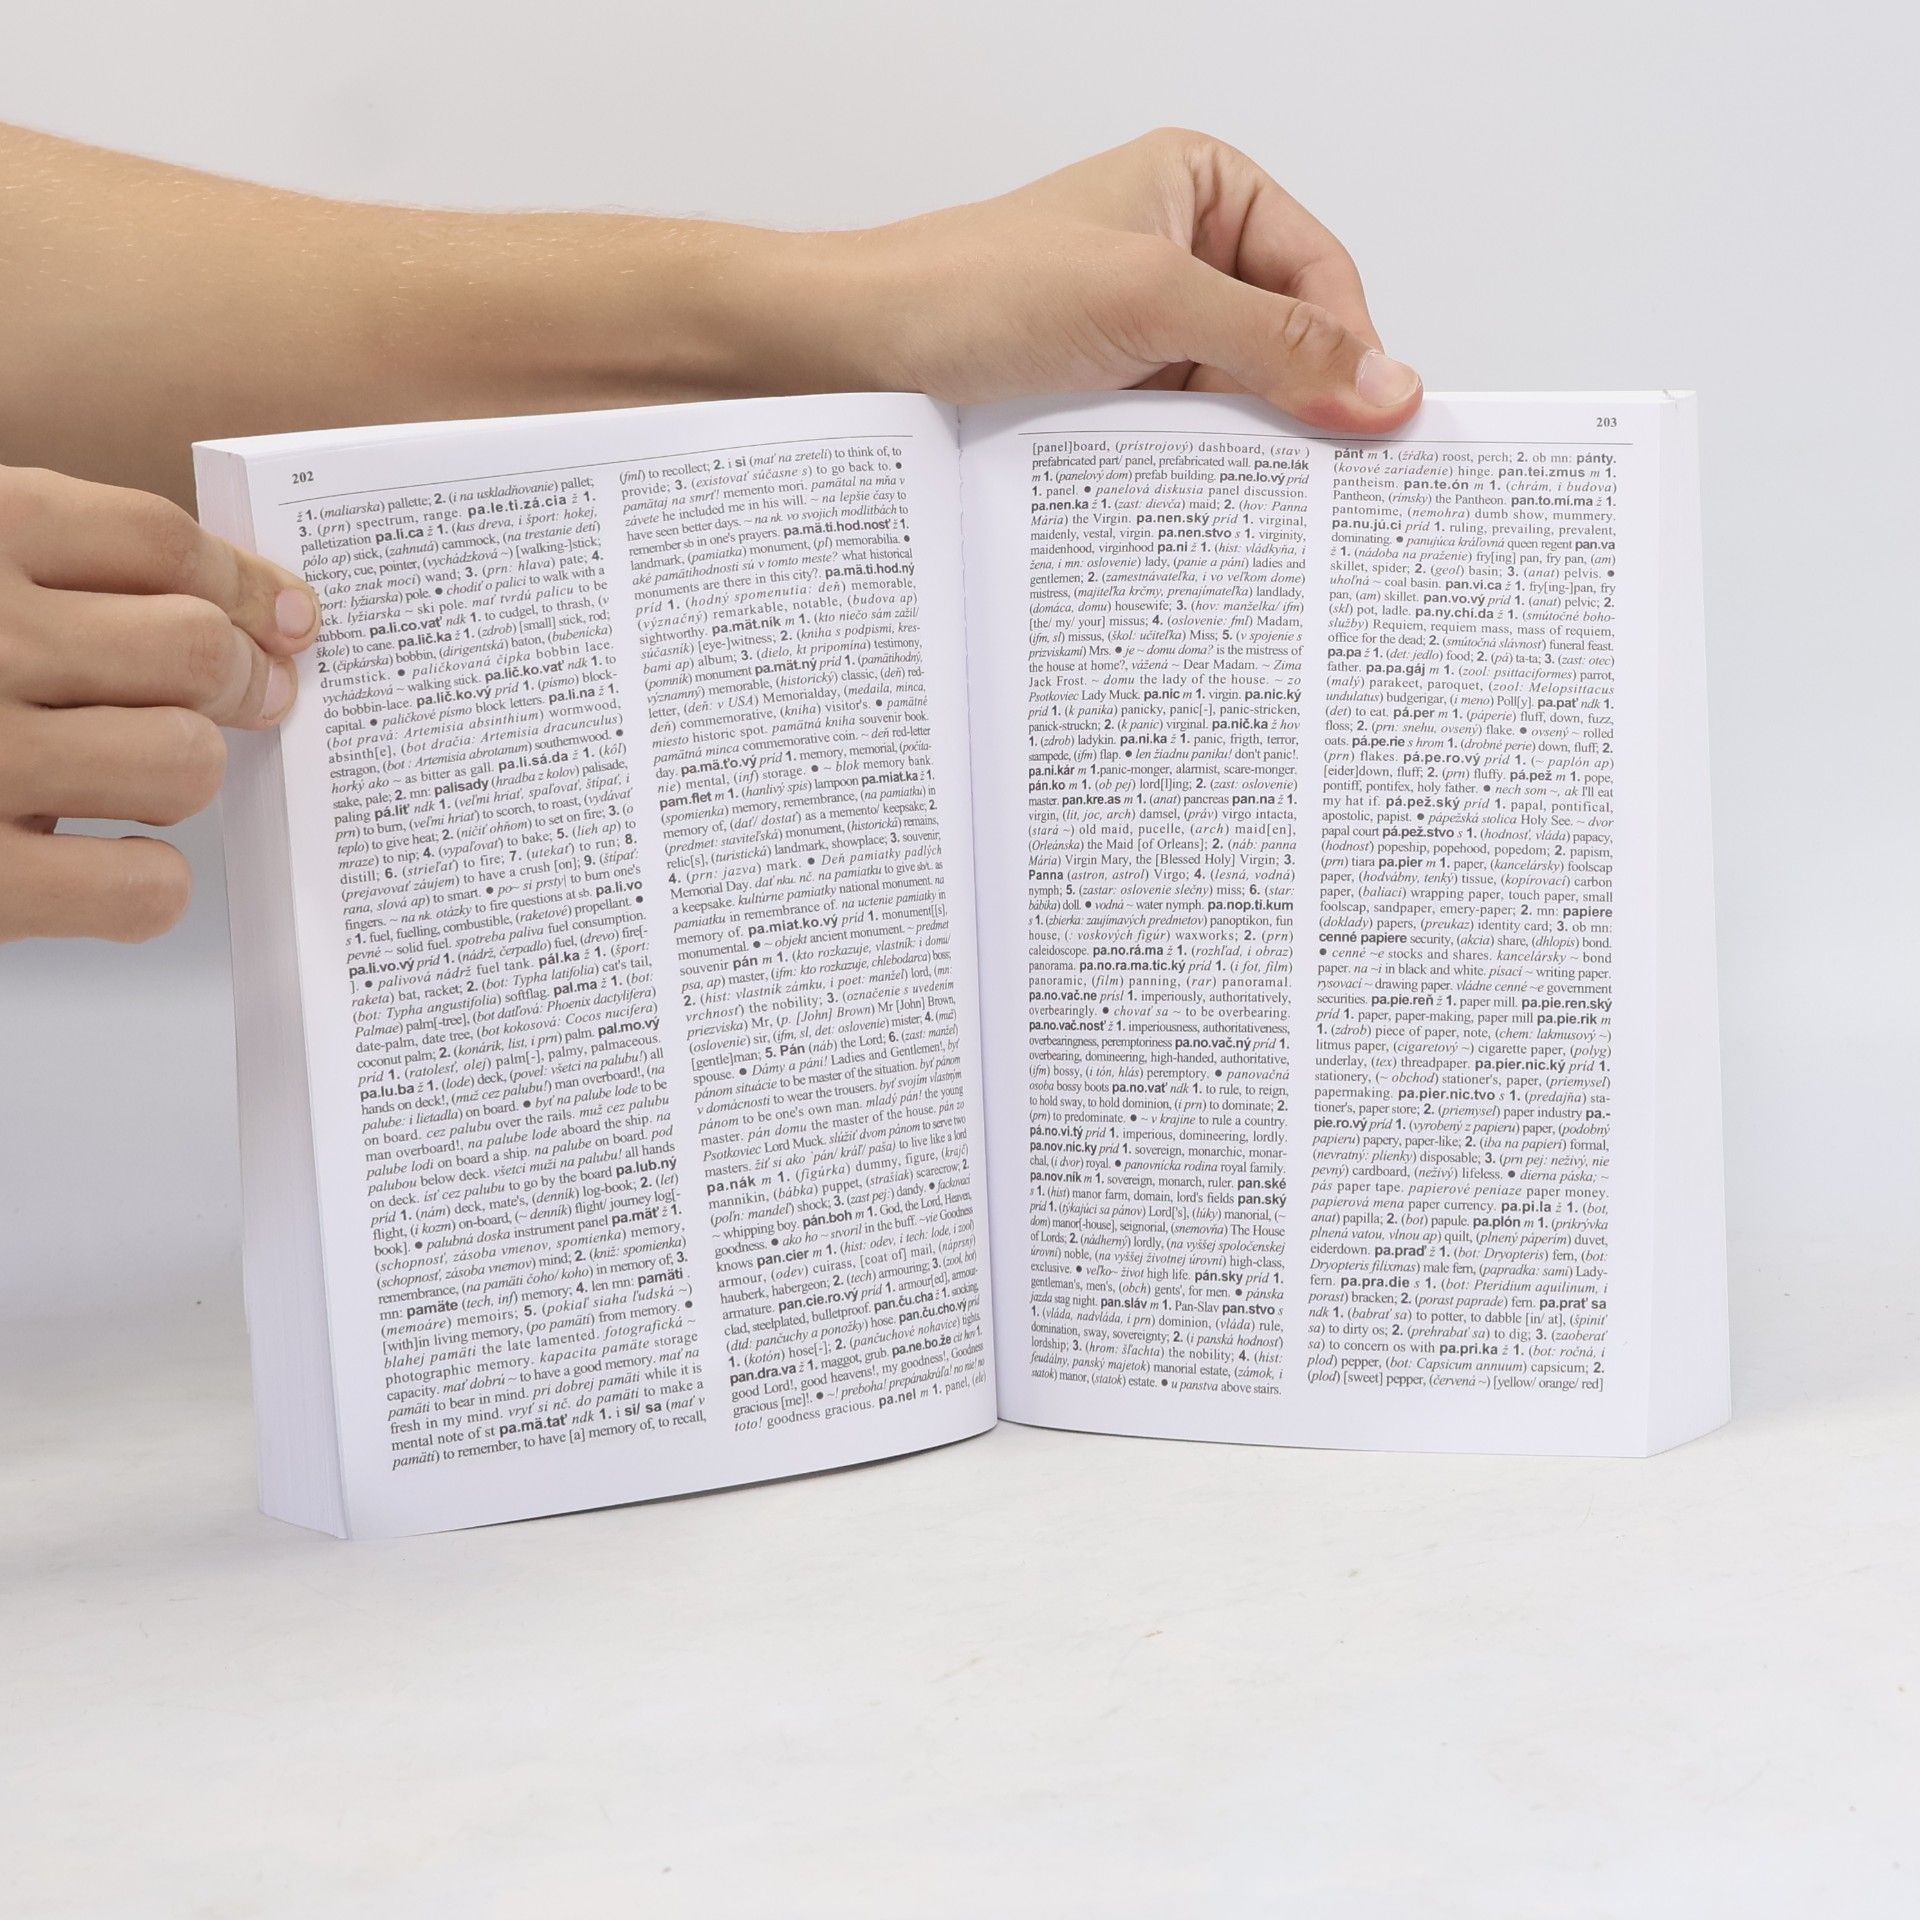 202
ž 1. (maliarska) pallette; 2. (i na uskladňovanie) pallet;
3. (prn) spectrum, range. pa.le.ti.zá.cia ž 1.
palletization pa.li.ca ž 1. (kus dreva, i šport: hokej,
pólo ap) stick, (zahnutá) cammock, (na trestanie detí)
hickory, cue, pointer, (vychádzková ~) [walking-]stick;
(ako znak moci) wand; 3. (prn: hlava) pate; 4.
port: lyžiarska) pole. ● chodiť o palici to walk with a
ick. lyžiarska ~ ski pole. mať tvrdú palicu to be
tubborn. pa.li.co.vať ndk 1. to cudgel, to thrash, (v
škole) to cane. pa.lič.ka ž 1. (zdrob) [small] stick, rod;
2. (čipkárska) bobbin, (dirigentská) baton, (bubenícka)
drumstick. ● paličkovaná čipka bobbin lace.
vychádzková ~ walking stick. pa.lič.ko.vať ndk 1. to
do bobbin-lace. pa.lič.ko.vý príd 1. (písmo) block-
capital. ● paličkové písmo block letters. pa.li.na ž 1.
(bot pravá: Artemisia absinthium) wormwood,
absinth[e], (bot dračia: Artemisia dracunculus)
estragon, (bot : Artemisia abrotanum) southernwood. ●
horký ako ~ as bitter as gall. pa.li.sá.da ž 1. (kôl)
stake, pale; 2. mn: palisady (hradba z kolov) palisade,
paling pá.liť ndk 1. (veľmi hriať, spaľovať, štípať, i
prn) to burn, (veľmi hriať) to scorch, to roast, (vydávať
teplo) to give heat; 2. (ničiť ohňom) to set on fire; 3. (o
mraze) to nip; 4. (vypaľovať) to bake; 5. (lieh ap) to
distill; 6. (strieľať) to fire; 7. (utekať) to run; 8.
(prejavovať záujem) to have a crush [on]; 9. (štípať:
rana, slová ap) to smart. ● po~ si prsty| to burn one's
fingers. ~ na nk. otázky to fire questions at sb. pa.li.vo
s 1. fuel, fuelling, combustible, (raketové) propellant. ●
pevné ~ solid fuel. spotreba paliva fuel consumption.
pa.li.vo.vý príd 1. (nádrž, čerpadlo) fuel, (drevo) fire[-
]. ● palivová nádrž fuel tank. pál.ka ž 1. (šport:
raketa) bat, racket; 2. (bot: Typha latifolia) cat's tail,
(bot: Typha angustifolia) softflag. pal.ma ž 1. (bot:
Palmae) palm[-tree], (bot datľová: Phoenix dactylifera)
date-palm, date tree, (bot kokosová: Cocos nucifera)
coconut palm; 2. (konárik, list, i prn) palm. pal.mo.vý
príd 1. (ratolesť, olej) palm[-], palmy, palmaceous.
pa.lu.ba ž 1. (lode) deck, (povel: všetci na palubu!) all
hands on deck!, (muž cez palubu!) man overboard!, (na
palube: i lietadla) on board. ● byť na palube lode to be
on board. cez palubu over the rails. muž cez palubu
man overboard!, na palube lode aboard the ship. na
palube lodi on board a ship. na palube on board. pod
palubou below deck. všetci muži na palubu! all hands
on deck. ísť cez palubu to go by the board pa.lub.ný
príd 1. (nám) deck, mate's, (denník) log-book; 2. (let)
flight, (i kozm) on-board, (~ denník) flight/ journey log[-
book]. ● palubná doska instrument panel pa.mäť ž 1.
(schopnosť, zásoba vmenov, spomienka) memory,
(schopnosť, zásoba vnemov) mind; 2. (kniž: spomienka)
remembrance, (na pamäti čoho/ koho) in memory of; 3.
mn: pamäte (tech, inf) memory; 4. len mn: pamäti .
(memoáre) memoirs; 5. (pokiaľ siaha ľudská ~)
[with]in living memory, (po pamäti) from memory. ●
blahej pamäti the late lamented. fotografická ~
photographic memory. kapacita pamäte storage
capacity. mať dobrú ~ to have a good memory. mať na
pamäti to bear in mind. pri dobrej pamäti while it is
fresh in my mind. vryť si nč. do pamäti to make a
mental note of st pa.mä.tať ndk 1. i si/ sa (mať v
pamäti) to remember, to have [a] memory of, to recall,
(fml) to recollect; 2. i si (mať na zreteli) to think of, to
provide; 3. (existovať súčasne s) to go back to. ●
pamätaj na smrť! memento mori. pamätal na mňa v
závete he included me in his will. ~ na lepšie časy to
have seen better days. ~ na nk. vo svojich modlitbách to
remember sb in one's prayers. pa.mä.ti.hod.nosť ž 1.
landmark, (pamiatka) monument, (pl) memorabilia. ●
aké pamätihodnosti sú v tomto meste? what historical
monuments are there in this city?. pa.mä.ti.hod.ný
príd 1. (hodný spomenutia: deň) memorable,
(význačný) remarkable, notable, (budova ap)
sightworthy. pa.mät.ník m 1. (kto niečo sám zažil/
súčasník) [eye-]witness; 2. (kniha s podpismi, kres-
bami ap) album; 3. (dielo, kt pripomína) testimony,
(pomník) monument pa.mät.ný príd 1. (pamätihodný,
významný) memorable, (historický) classic, (deň) red-
letter, (deň: v USA) Memorialday, (medaila, minca,
deň) commemorative, (kniha) visitor's. ● pamätné
miesto historic spot. pamätná kniha souvenir book.
pamätná minca commemorative coin. ~ deň red-letter
day. pa.mä.ťo.vý príd 1. memory, memorial, (počíta-
nie) mental, (inf) storage. ● ~ blok memory bank.
pam.flet m 1. (hanlivý spis) lampoon pa.miat.ka ž 1.
(spomienka) memory, remembrance, (na pamiatku) in
memory of, (dať/ dostať) as a memento/ keepsake; 2.
(predmet: staviteľská) monument, (historická) remains,
relic[s], (turistická) landmark, showplace; 3. souvenir,
4. (prn: jazva) mark. ● Deň pamiatky padlých
Memorial Day. dať nku. nč. na pamiatku to give sbt. as
a keepsake. kultúrne pamiatky national monument. na
pamiatku in remembrance of. na uctenie pamiatky in
memory of. pa.miat.ko.vý príd 1. monument[s],
monumental. ● ~ objekt ancient monument. ~ predmet
souvenir pán m 1. (kto rozkazuje, vlastník: i domu/
psa, ap) master, (ifm: kto rozkazuje, chlebodarca) boss;
2. (hist: vlastník zámku, i poet: manžel) lord, (mn:
vrchnosť) the nobility; 3. (označenie s uvedením
priezviska) Mr, (p. [John] Brown) Mr [John] Brown,
(oslovenie) sir, (ifm, sl, det: oslovenie) mister; 4. (muž)
[gentle]man; 5. Pán (náb) the Lord; 6. (zast: manžel)
spouse. ● Dámy a páni! Ladies and Gentlemen!, byť
pánom situácie to be master of the situation. byť pánom
v domácnosti to wear the trousers. byť svojím vlastným
pánom to be one's own man. mladý pán! the young
master. pán domu the master of the house. pán zo
Psotkoviec Lord Muck. slúžiť dvom pánom to serve two
masters. žiť si ako `pán/ kráľ/ paša) to live like a lord
pa.nák m 1. (figúrka) dummy, figure, (krajč)
mannikin, (bábka) puppet, (strašiak) scarecrow; 2.
(poľn: mandeľ) shock; 3. (zast pej:) dandy. ● fackovací
~ whipping boy. pán.boh m 1. God, the Lord, Heaven,
goodness. ● ako ho ~ stvoril in the buff. ~vie Goodness
knows pan.cier m 1. (hist: odev, i tech: lode, i zool)
armour, (odev) cuirass, [coat of] mail, (náprsný)
hauberk, habergeon; 2. (tech) armouring; 3. (zool, bot)
armature. pan.cie.ro.vý príd 1. armour[ed], armour-
clad, steelplated, bulletproof. pan.ču.cha ž 1. stocking,
(dtd: pančuchy a ponožky) hose. pan.ču.cho.vý príd
1. (kotón) hose[-]; 2. (pančuchové nohavice) tights.
pan.dra.va ž 1. maggot, grub. pa.ne.bo.že cit hov 1.
good Lord!, good heavens!, my goodness!, Goodness
gracious [me]!. ● ~! preboha! prepánakráľa! no nie! no
toto! goodness gracious. pa.nel m 1. panel, (ele)
203
[panel]board, (prístrojový) dashboard, (stav )
prefabricated part/ panel, prefabricated wall. pa.ne.lák
m 1. (panelový dom) prefab building. pa.ne.lo.vý príd
1. panel. ● panelová diskusia panel discussion.
pa.nen.ka ž 1. (zast: dievča) maid; 2. (hov: Panna
Mária) the Virgin. pa.nen.ský príd 1. virginal,
maidenly, vestal, virgin. pa.nen.stvo s 1. virginity,
maidenhood, virginhood pa.ni ž 1. (hist: vládkyňa, i
žena, i mn: oslovenie) lady, (panie a páni) ladies and
gentlemen; 2. (zamestnávateľka, i vo veľkom dome)
mistress, (majiteľka krčmy, prenajímateľka) landlady,
(domáca, domu) housewife; 3. (hov: manželka/ ifm)
[the/ my/ your] missus; 4. (oslovenie: fml) Madam,
(ifm, sl) missus, (škol: učiteľka) Miss; 5. (v spojenie s
prizviskami) Mrs. ● je ~ domu doma? is the mistress of
the house at home?, vážená ~ Dear Madam. ~ Zima
Jack Frost. ~ domu the lady of the house. ~ zo
Psotkoviec Lady Muck. pa.nic m 1. virgin. pa.nic.ký
príd 1. (k panika) panicky, panic[-], panic-stricken,
panick-struckn; 2. (k panic) virginal. pa.nič.ka ž hov
1. (zdrob) ladykin. pa.ni.ka ž 1. panic, frigth, terror,
stampede, (ifm) flap. ● len žiadnu paniku! don't panic!.
pa.ni.kár m 1.panic-monger, alarmist, scare-monger.
pán.ko m 1. (ob pej) lord[l]ing; 2. (zast: oslovenie)
master. pan.kre.as m 1. (anat) pancreas pan.na ž 1.
virgin, (lit, joc, arch) damsel, (práv) virgo intacta,
(stará ~) old maid, pucelle, (arch) maid[en],
(Orleánska) the Maid [of Orleans]; 2. (náb: panna
Mária) Virgin Mary, the [Blessed Holy] Virgin; 3.
Panna (astron, astrol) Virgo; 4. (lesná, vodná)
nymph; 5. (zastar: oslovenie slečny) miss; 6. (star:
bábika) doll. ● vodná ~ water nymph. pa.nop.ti.kum
s 1. (zbierka: zaujímavých predmetov) panoptikon, fun
house, (: voskových figúr) waxworks; 2. (prn)
caleidoscope. pa.no.rá.ma ž 1. (rozhľad, i obraz)
panorama. pa.no.ra.ma.tic.ký príd 1. (i fot, film)
panoramic, (film) panning, (rar) panoramal.
pa.no.vač.ne prísl 1. imperiously, authoritatively,
overbearingly. ● chovať sa ~ to be overbearing.
pa.no.vač.nosť ž 1. imperiousness, authoritativeness,
overbearingness, peremptoriness pa.no.vač.ný príd 1.
overbearing, domineering, high-handed, authoritative,
(ifm) bossy, (i tón, hlás) peremptory. ● panovačná
osoba bossy boots pa.no.vať ndk 1. to rule, to reign,
to hold sway, to hold dominion, (i prn) to dominate; 2.
(prn) to predominate. ● ~ v krajine to rule a country.
pá.no.vi.tý príd 1. imperious, domineering, lordly.
pa.nov.níc.ky príd 1. sovereign, monarchic, monar-
chal, (i dvor) royal. ● panovnícka rodina royal family.
pa.nov.ník m 1. sovereign, monarch, ruler. pan.ské
s 1. (hist) manor farm, domain, lord's fields pan.ský
príd 1. (týkajúci sa pánov) Lord['s], (lúky) manorial, (~
dom) manor[-house], seignorial, (snemovňa) The House
of Lords; 2. (nádherný) lordly, (na vyššej spoločenskej
úrovni) noble, (na vyššej životnej úrovni) high-class,
exclusive. ● veľko~ život high life. pán.sky príd 1.
gentleman's, men's, (obch) gents', for men. ● pánska
jazda stag night. pan.sláv m 1. Pan-Slav pan.stvo s
1. (vláda, nadvláda, i prn) dominion, (vláda) rule,
domination, sway, sovereignty; 2. (i panská hodnosť)
lordship; 3. (hrom: šľachta) the nobility; 4. (hist:
feudálny, panský majetok) manorial estate, (zámok, i
statok) manor, (statok) estate. ● u panstva above stairs.
pánt m 1. (žŕdka) roost, perch; 2. ob mn: pánty.
(kovové zariadenie) hinge. pan.tei.zmus m 1.
pantheism. pan.te.ón m 1. (chrám, i budova)
Pantheon, (rímsky) the Pantheon. pan.to.mí.ma ž 1.
pantomime, (nemohra) dumb show, mummery.
pa.nu.jú.ci príd 1. ruling, prevailing, prevalent,
dominating. ● panujúca kráľovná queen regent pan.va
ž 1. (nádoba na praženie) fry[ing] pan, fry pan, (am)
skillet, spider; 2. (geol) basin; 3. (anat) pelvis. ●
uhoľná ~ coal basin. pan.vi.ca ž 1. fry[ing-]pan, fry
pan, (am) skillet. pan.vo.vý príd 1. (anat) pelvic; 2.
(skl) pot, ladle. pa.ny.chí.da ž 1. (smútočné boho-
služby) Requiem, requiem mass, mass of requiem,
office for the dead; 2. (smútočná slávnosť) funeral feast.
pa.pa ž 1. (det: jedlo) food; 2. (pá) ta-ta; 3. (zast: otec)
father. pa.pa.gáj m 1. (zool: psittaciformes) parrot,
(malý) parakeet, paroquet, (zool: Melopsittacus
undulatus) budgerigar, (i meno) Poll[y]. pa.pať ndk 1.
(det) to eat. pá.per m 1. (páperie) fluff, down, fuzz,
floss; 2. (prn: snehu, ovsený) flake. ● ovsený ~ rolled
oats. pá.pe.rie s hrom 1. (drobné perie) down, fluff; 2.
(prn) flakes. pá.pe.ro.vý príd 1. (~ paplón ap)
[eider]down, fluff; 2. (prn) fluffy. pá.pež m 1. pope,
pontiff, pontifex, holy father. ● nech som ~, ak I'll eat
my hat if. pá.pež.ský príd 1. papal, pontifical,
apostolic, papist. ● pápežská stolica Holy See. ~ dvor
papal court pá.pež.stvo s 1. (hodnosť, vláda) papacy,
(hodnosť) popeship, popehood, popedom; 2. papism,
(prn) tiara pa.pier m 1. paper, (kancelársky) foolscap
paper, (hodvábny, tenký) tissue, (kopírovací) carbon
paper, (baliaci) wrapping paper, touch paper, small
foolscap, sandpaper, emery-paper; 2. mn: papiere
(doklady) papers, (preukaz) identity card; 3. ob mn:
cenné papiere security, (akcia) share, (dhlopis) bond.
● cenné ~e stocks and shares. kancelársky ~ bond
paper. na ~i in black and white. písací ~ writing paper.
rysovací ~ drawing paper. vládne cenné ~e government
securities. pa.pie.reň ž 1. paper mill. pa.pie.ren.ský
príd 1. paper, paper-making, paper mill pa.pie.rik m
1. (zdrob) piece of paper, note, (chem: lakmusový ~)
litmus paper, (cigaretový ~) cigarette paper, (polyg)
underlay, (tex) threadpaper. pa.pier.nic.ký príd 1.
stationery, (~ obchod) stationer's, paper, (priemysel)
papermaking. pa.pier.nic.tvo s 1. (predajňa) sta-
tioner's, paper store; 2. (priemysel) paper industry pa.-
pie.ro.vý príd 1. (vyrobený z papieru) paper, (podobný
papieru) papery, paper-like; 2. (iba na papieri) formal,
(nevratný: plienky) disposable; 3. (prn pej: neživý, nie
pevný) cardboard, (neživý) lifeless. ● dierna páska; ~
pás paper tape. papierové peniaze paper money.
papierová mena paper currency. pa.pi.la ž 1. (bot,
anat) papilla; 2. (bot) papule. pa.plón m 1. (prikrývka
plnená vatou, vlnou ap) quilt, (plnený páperím) duvet,
eiderdown. pa.praď ž 1. (bot: Dryopteris) fern, (bot:
Dryopteris filixmas) male fern, (papradka: samí) Lady-
fern. pa.pra.die s 1. (bot: Pteridium aquilinum, i
porast) bracken; 2. (porast paprade) fern. pa.prať sa
ndk 1. (babrať sa) to potter, to dabble [in/ at], (špiniť
sa) to dirty os; 2. (prehrabať sa) to dig; 3. (zaoberať
sa) to concern os with pa.pri.ka ž 1. (bot: ročná, i
plod) pepper, (bot: Capsicum annuum) capsicum; 2.
(plod) [sweet] pepper, (červená ~) [yellow/ orange/ red]